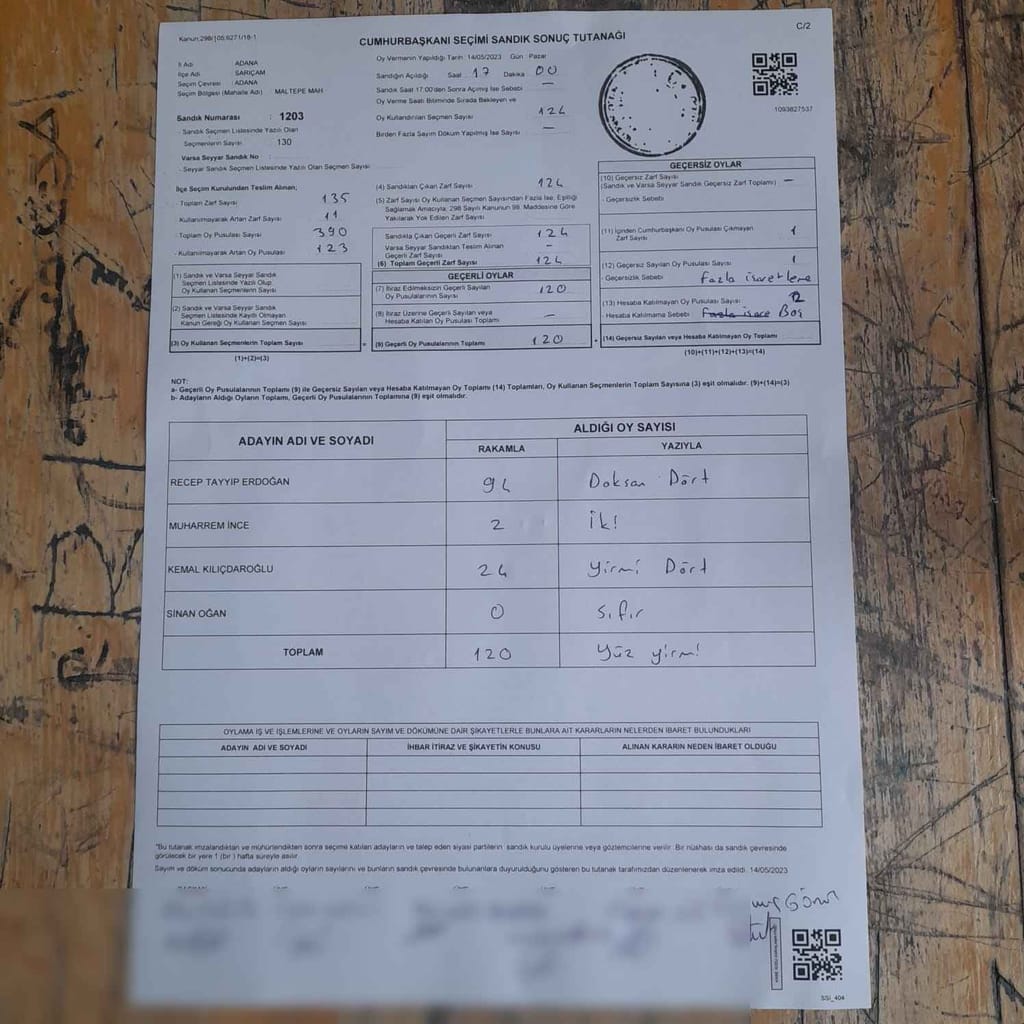 Kanun:298/ 05.6271/18-1
C/2
CUMHURBAŞKANI SEÇİMİ SANDIK SONUÇ TUTANAĞI
İl Adı : ADANA
İlçe Adı : SARIÇAM
Seçim Çevresi : ADANA
Seçim Bölgesi (Mahalle Adı) : MALTEPE MAH
Sandık Numarası : 1203
- Sandık Seçmen Listesinde Yazılı Olan
Seçmenlerin Sayısı : 130
Varsa Seyyar Sandık No :
- Seyyar Sandık Seçmen Listesinde Yazılı Olan Seçmen Sayısı:
Oy Vermenin Yapıldığı Tarih : 14/05/2023 Gün : Pazar
Sandığın Açıldığı Saat : 17 Dakika : 00
Sandık Saat 17:00'den Sonra Açılmış İse Sebebi : —
Oy Verme Saati Bitiminde Sırada Bekleyen ve
Oy Kullandırılan Seçmen Sayısı : 124
Birden Fazla Sayım Döküm Yapılmış İse Sayısı : —
1093827537
İlçe Seçim Kurulundan Teslim Alınan;
- Toplam Zarf Sayısı : 135
- Kullanılmayarak Artan Zarf Sayısı : 11
- Toplam Oy Pusulası Sayısı : 390
- Kullanılmayarak Artan Oy Pusulası : 123
(1) Sandık ve Varsa Seyyar Sandık
Seçmen Listesinde Yazılı Olup
Oy Kullanan Seçmenlerin Sayısı :
(2) Sandık ve Varsa Seyyar Sandık
Seçmen Listesinde Kayıtlı Olmayan
Kanun Gereği Oy Kullanan Seçmen Sayısı :
(3) Oy Kullanan Seçmenlerin Toplam Sayısı :
(1)+(2)=(3)
(4) Sandıktan Çıkan Zarf Sayısı : 124
(5) Zarf Sayısı Oy Kullanan Seçmen Sayısından Fazla İse, Eşitliği
Sağlamak Amacıyla; 298 Sayılı Kanunun 98. Maddesine Göre
Yakılarak Yok Edilen Zarf Sayısı :
Sandıkta Çıkan Geçerli Zarf Sayısı : 124
Varsa Seyyar Sandıktan Teslim Alınan
Geçerli Zarf Sayısı : —
(6) Toplam Geçerli Zarf Sayısı : 124
GEÇERLİ OYLAR
(7) İtiraz Edilmeksizin Geçerli Sayılan
Oy Pusulalarının Sayısı : 120
(8) İtiraz Üzerine Geçerli Sayılan veya
Hesaba Katılan Oy Pusulası Toplamı : —
(9) Geçerli Oy Pusulalarının Toplamı : 120
GEÇERSİZ OYLAR
(10) Geçersiz Zarf Sayısı : —
(Sandık ve Varsa Seyyar Sandık Geçersiz Zarf Toplamı)
- Geçersizlik Sebebi :
(11) İçinden Cumhurbaşkanı Oy Pusulası Çıkmayan
Zarf Sayısı : 1
(12) Geçersiz Sayılan Oy Pusulası Sayısı : 1
- Geçersizlik Sebebi : fazla işaretleme
(13) Hesaba Katılmayan Oy Pusulası Sayısı : 2
- Hesaba Katılmama Sebebi : Boş
(14) Geçersiz Sayılan veya Hesaba Katılmayan Oy Toplamı :
(10)+(11)+(12)+(13)=(14)
NOT:
a- Geçerli Oy Pusulalarının Toplamı (9) ile Geçersiz Sayılan veya Hesaba Katılmayan Oy Toplamı (14) Toplamları, Oy Kullanan Seçmenlerin Toplam Sayısına (3) eşit olmalıdır. (9)+(14)=(3)
b- Adayların Aldığı Oyların Toplamı, Geçerli Oy Pusulalarının Toplamına (9) eşit olmalıdır.
ADAYIN ADI VE SOYADI ALDIĞI OY SAYISI
RAKAMLA YAZIYLA
RECEP TAYYIP ERDOĞAN 94 Doksan Dört
MUHARREM İNCE 2 İki
KEMAL KILIÇDAROĞLU 24 Yirmi Dört
SİNAN OĞAN 0 Sıfır
TOPLAM 120 Yüz yirmi
OYLAMA İŞ VE İŞLEMLERİNE VE OYLARIN SAYIM VE DÖKÜMÜNE DAİR ŞİKAYETLERLE BUNLARA AİT KARARLARIN NELERDEN İBARET BULUNDUKLARI
ADAYIN ADI VE SOYADI İHBAR İTİRAZ VE ŞİKAYETİN KONUSU ALINAN KARARIN NEDEN İBARET OLDUĞU
"Bu tutanak imzalandıktan ve mühürlendikten sonra seçime katılan adayların ve talep eden siyasi partilerin sandık kurulu üyelerine veya gözlemcilerine verilir. Bir nüshası da sandık çevresinde
görülecek bir yere 1 (bir) hafta süreyle asılır.
Sayım ve döküm sonucunda adayların aldığı oyların sayılarını ve bunların sandık çevresinde bulunanlara duyurulduğunu gösteren bu tutanak tarafımızdan düzenlenerek imza edildi. 14/05/2023
SSİ_404